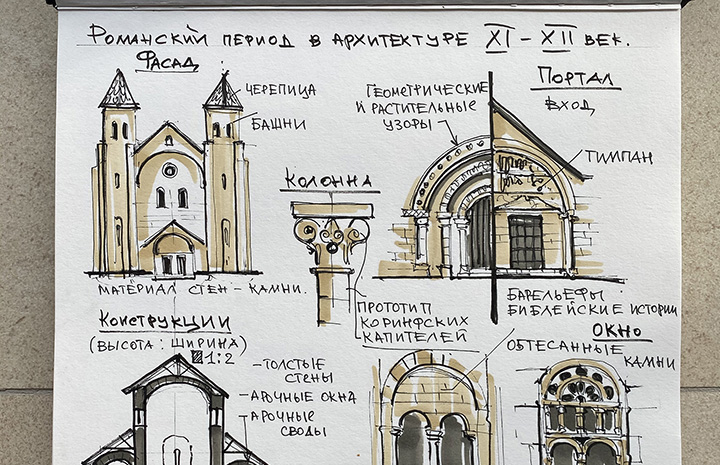 Романский период в архитектуре XI – XII век.
Фасад
Черепица
Башни
Материал стен – камни.
Колонна
Прототип
коринфских
капителей
Геометрические
и растительные
узоры
Портал
вход
Тимпан
Барельефы
библейские истории
Конструкции
(высота : ширина)
1:2
– толстые
стены
– арочные окна
– арочные
своды
Окно
Обтесанные
камни